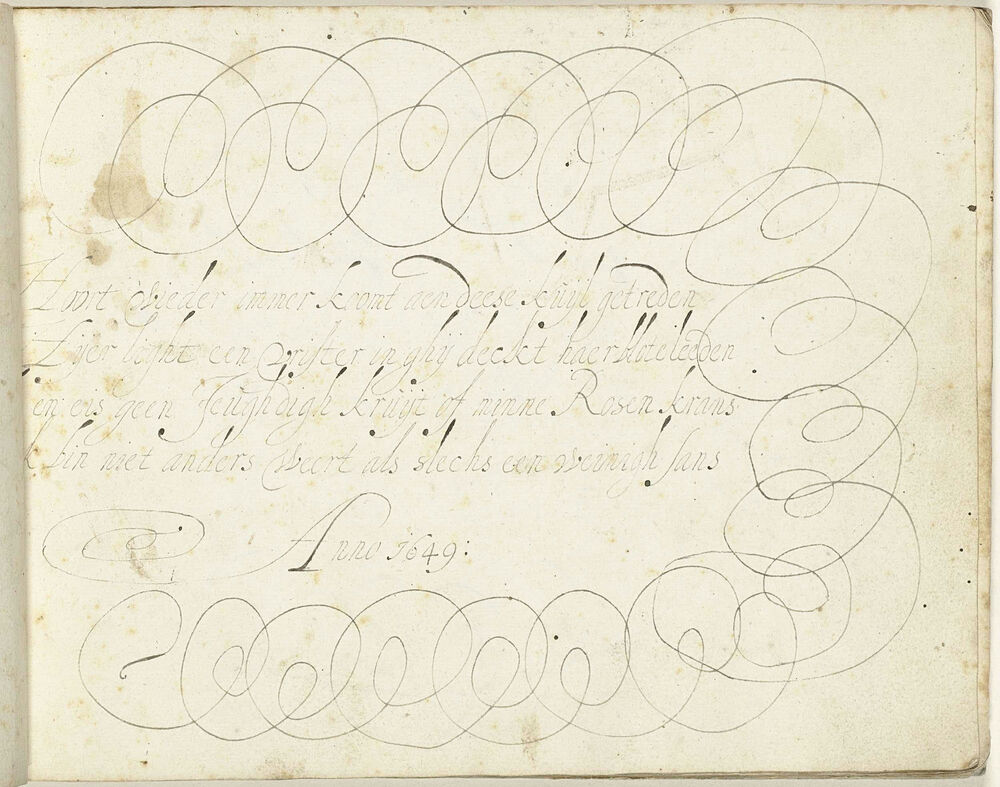 Hoort Wieder immer koomt aen deese kuyl getreden
Hier leght een Vrijster in ghij deckt haer blote leeden
en eis geen Jeughdigh kruijt of minne Rosen krans
k bin niet anders Weert als slechs een weinigh sans
Anno 1649: